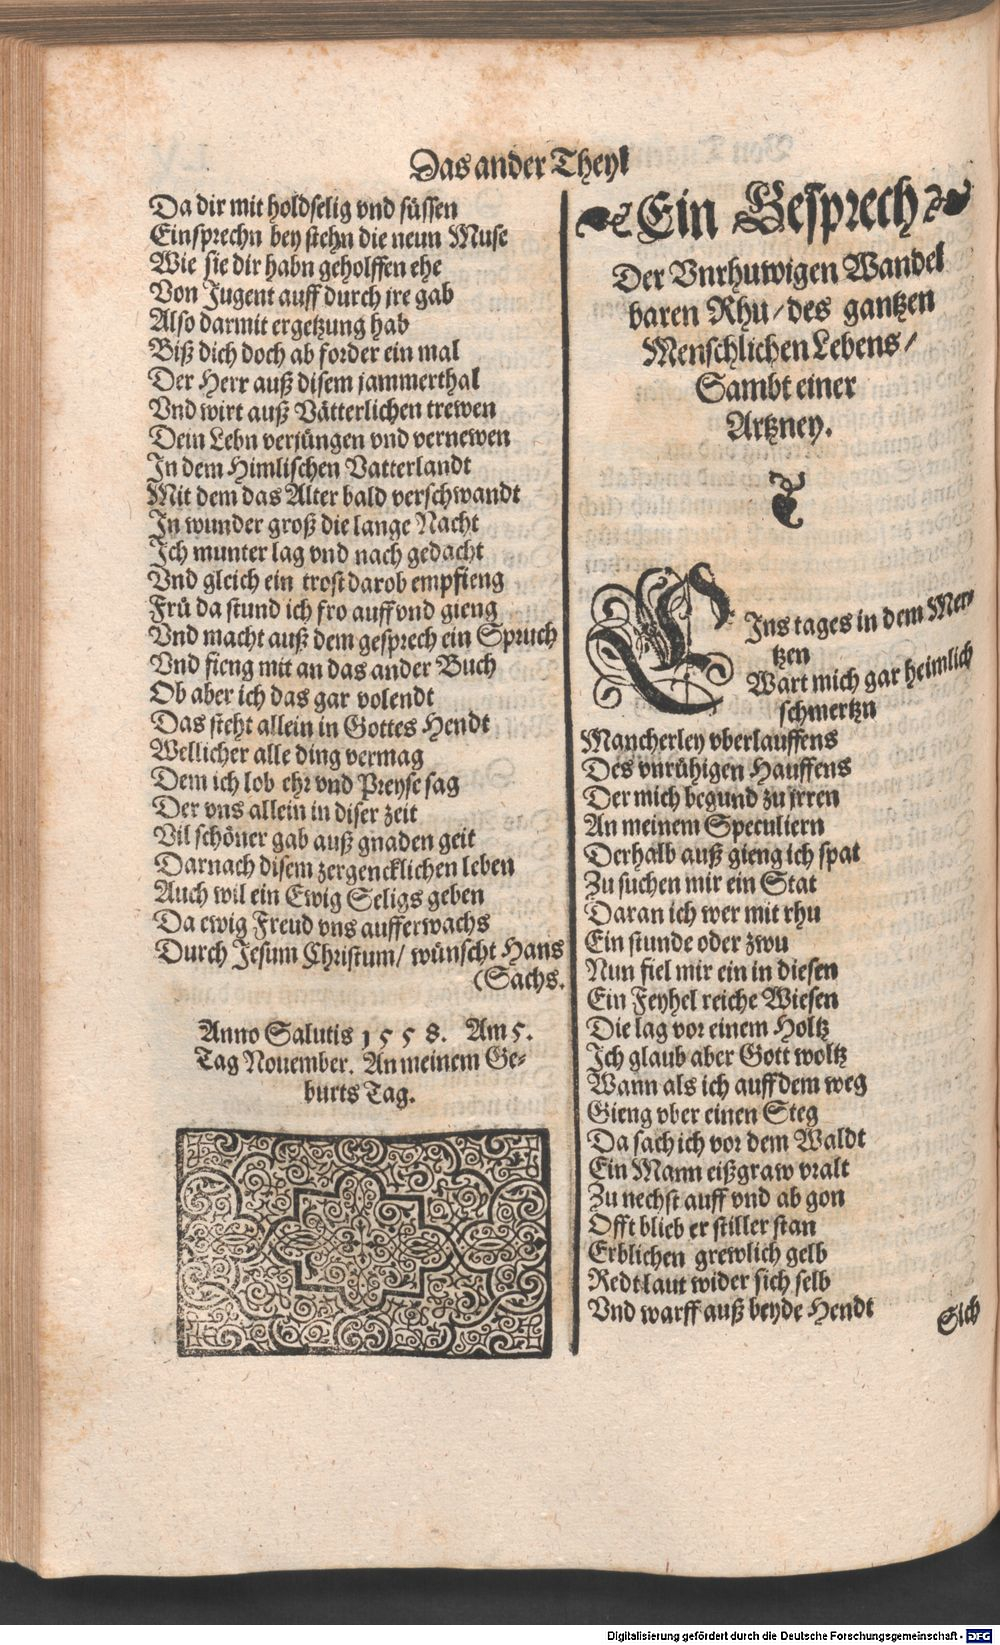 Das ander Theyl
Da dir mit holdselig vnd süssen
Einsprechn bey stehn die neun Muse
Wie sie dir habn geholffen ehe
Von Jugent auff durch jre gab
Also darmit ergetzung hab
Biß dich doch ab forder ein mal
Der Herr auß disem jammerthal
Vnd wirt auß Vätterlichen trewen
Dein Lebn verjüngen vnd vernewen
In dem Himlischen Vatterlandt
Mit dem das Alter bald verschwandt
In wunder groß die lange Nacht
Ich munter lag vnd nach gedacht
Vnd gleich ein trost darob empfieng
Frü da stund ich fro auff vnd gieng
Vnd macht auß dem gesprech ein Spruch
Vnd fieng mit an das ander Buch
Ob aber ich das gar volendt
Das steht allein in Gottes Hendt
Wellicher alle ding vermag
Dem ich lob ehr vnd Preyse sag
Der vns allein in diser zeit
Vil schöner gab auß gnaden geit
Darnach disem zergencklichen leben
Auch wil ein Ewig Seligs geben
Da ewig Freud vns aufferwachs
Durch Jesum Christum/ wünscht Hans
(Sachs.
Anno Salutis 1558. Am 5.
Tag Nouember. An meinem Ge-
burts Tag.
Ein Gesprech
Der Vnrhuwigen Wandel
baren Rhu/ des gantzen
Menschlichen Lebens/
Sambt einer
Artzney.
EIns tages in dem Mer-
tzen
Wart mich gar heimlich
schmertzn
Mancherley vberlauffens
Des vnrühigen Hauffens
Der mich begund zu jrren
An meinem Speculiern
Derhalb auß gieng ich spat
Zu suchen mir ein Stat
Daran ich wer mit rhu
Ein stunde oder zwu
Nun fiel mir ein in diesen
Ein Feyhel reiche Wiesen
Die lag vor einem Holtz
Ich glaub aber Gott woltz
Wann als ich auff dem weg
Gieng vber einen Steg
Da sach ich vor dem Waldt
Ein Mann eißgraw vralt
Zu nechst auff vnd ab gon
Offt blieb er stiller stan
Erblichen grewlich gelb
Redt laut wider sich selb
Vnd warff auß beyde Hendt
Sich
Digitalisierung gefördert durch die Deutsche Forschungsgemeinschaft - DFG